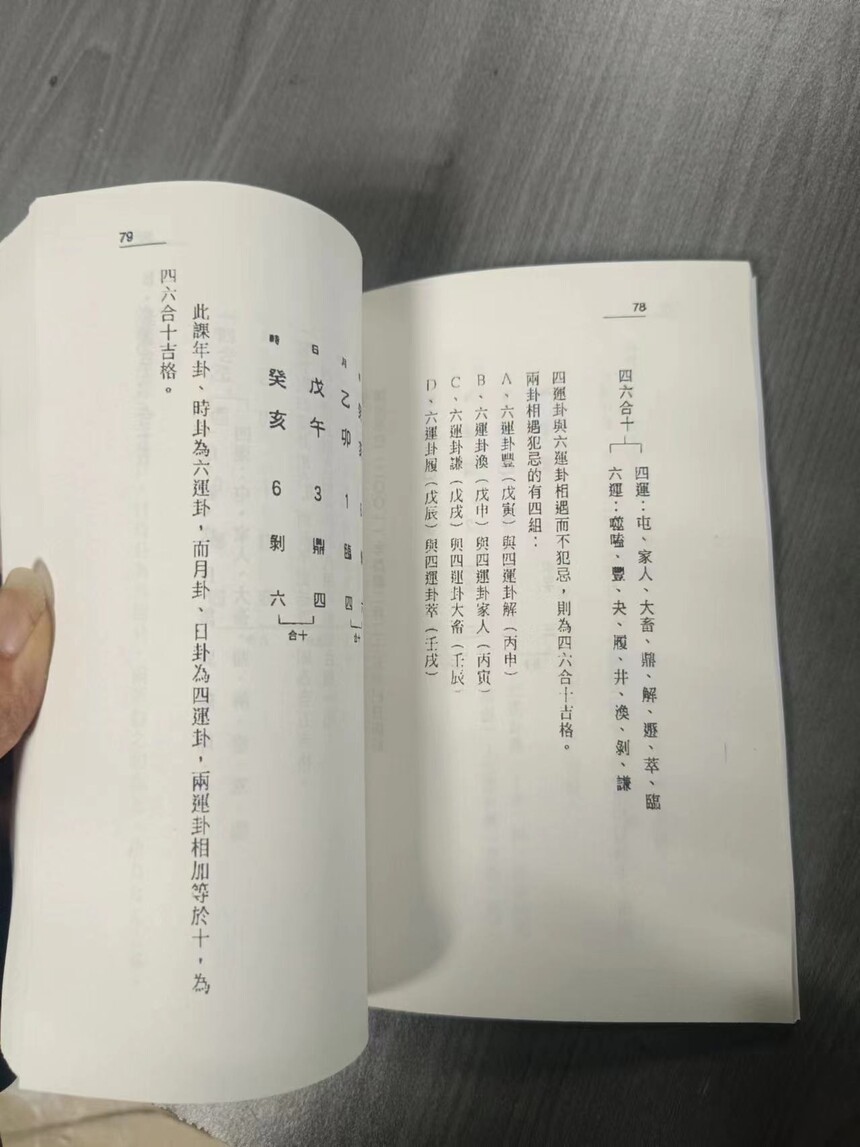 78
四六合十
四運：屯、家人、大畜、鼎、解、遯、萃、臨
六運：噬嗑、豐、夬、履、井、渙、剝、謙
四運卦與六運卦相遇而不犯忌，則為四六合十吉格。
兩卦相遇犯忌的有四組：
A、六運卦豐（戊寅）與四運卦解（丙申）
B、六運卦渙（戊申）與四運卦家人（丙寅）
C、六運卦謙（戊戌）與四運卦大畜（壬辰）
D、六運卦履（戊辰）與四運卦萃（壬戌）
79
月 乙卯 1 臨 四
日 戊午 3 鼎 四
時 癸亥 6 剝 六
合十
此課年卦、時卦為六運卦，而月卦、日卦為四運卦，兩運卦相加等於十，為
四六合十吉格。